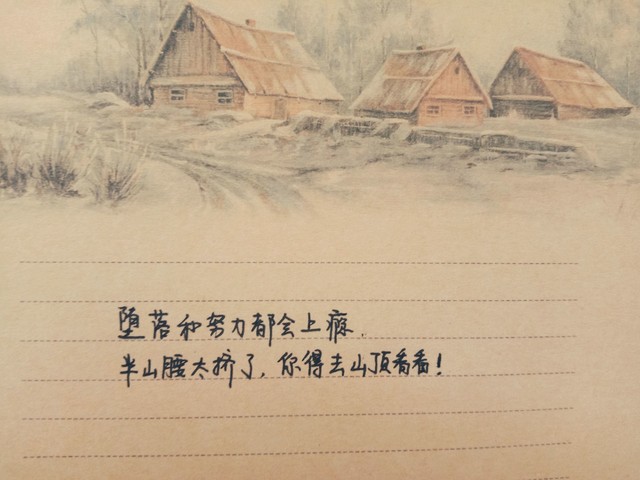 堕落和努力都会上瘾.
半山腰太挤了,你得去山顶看看!